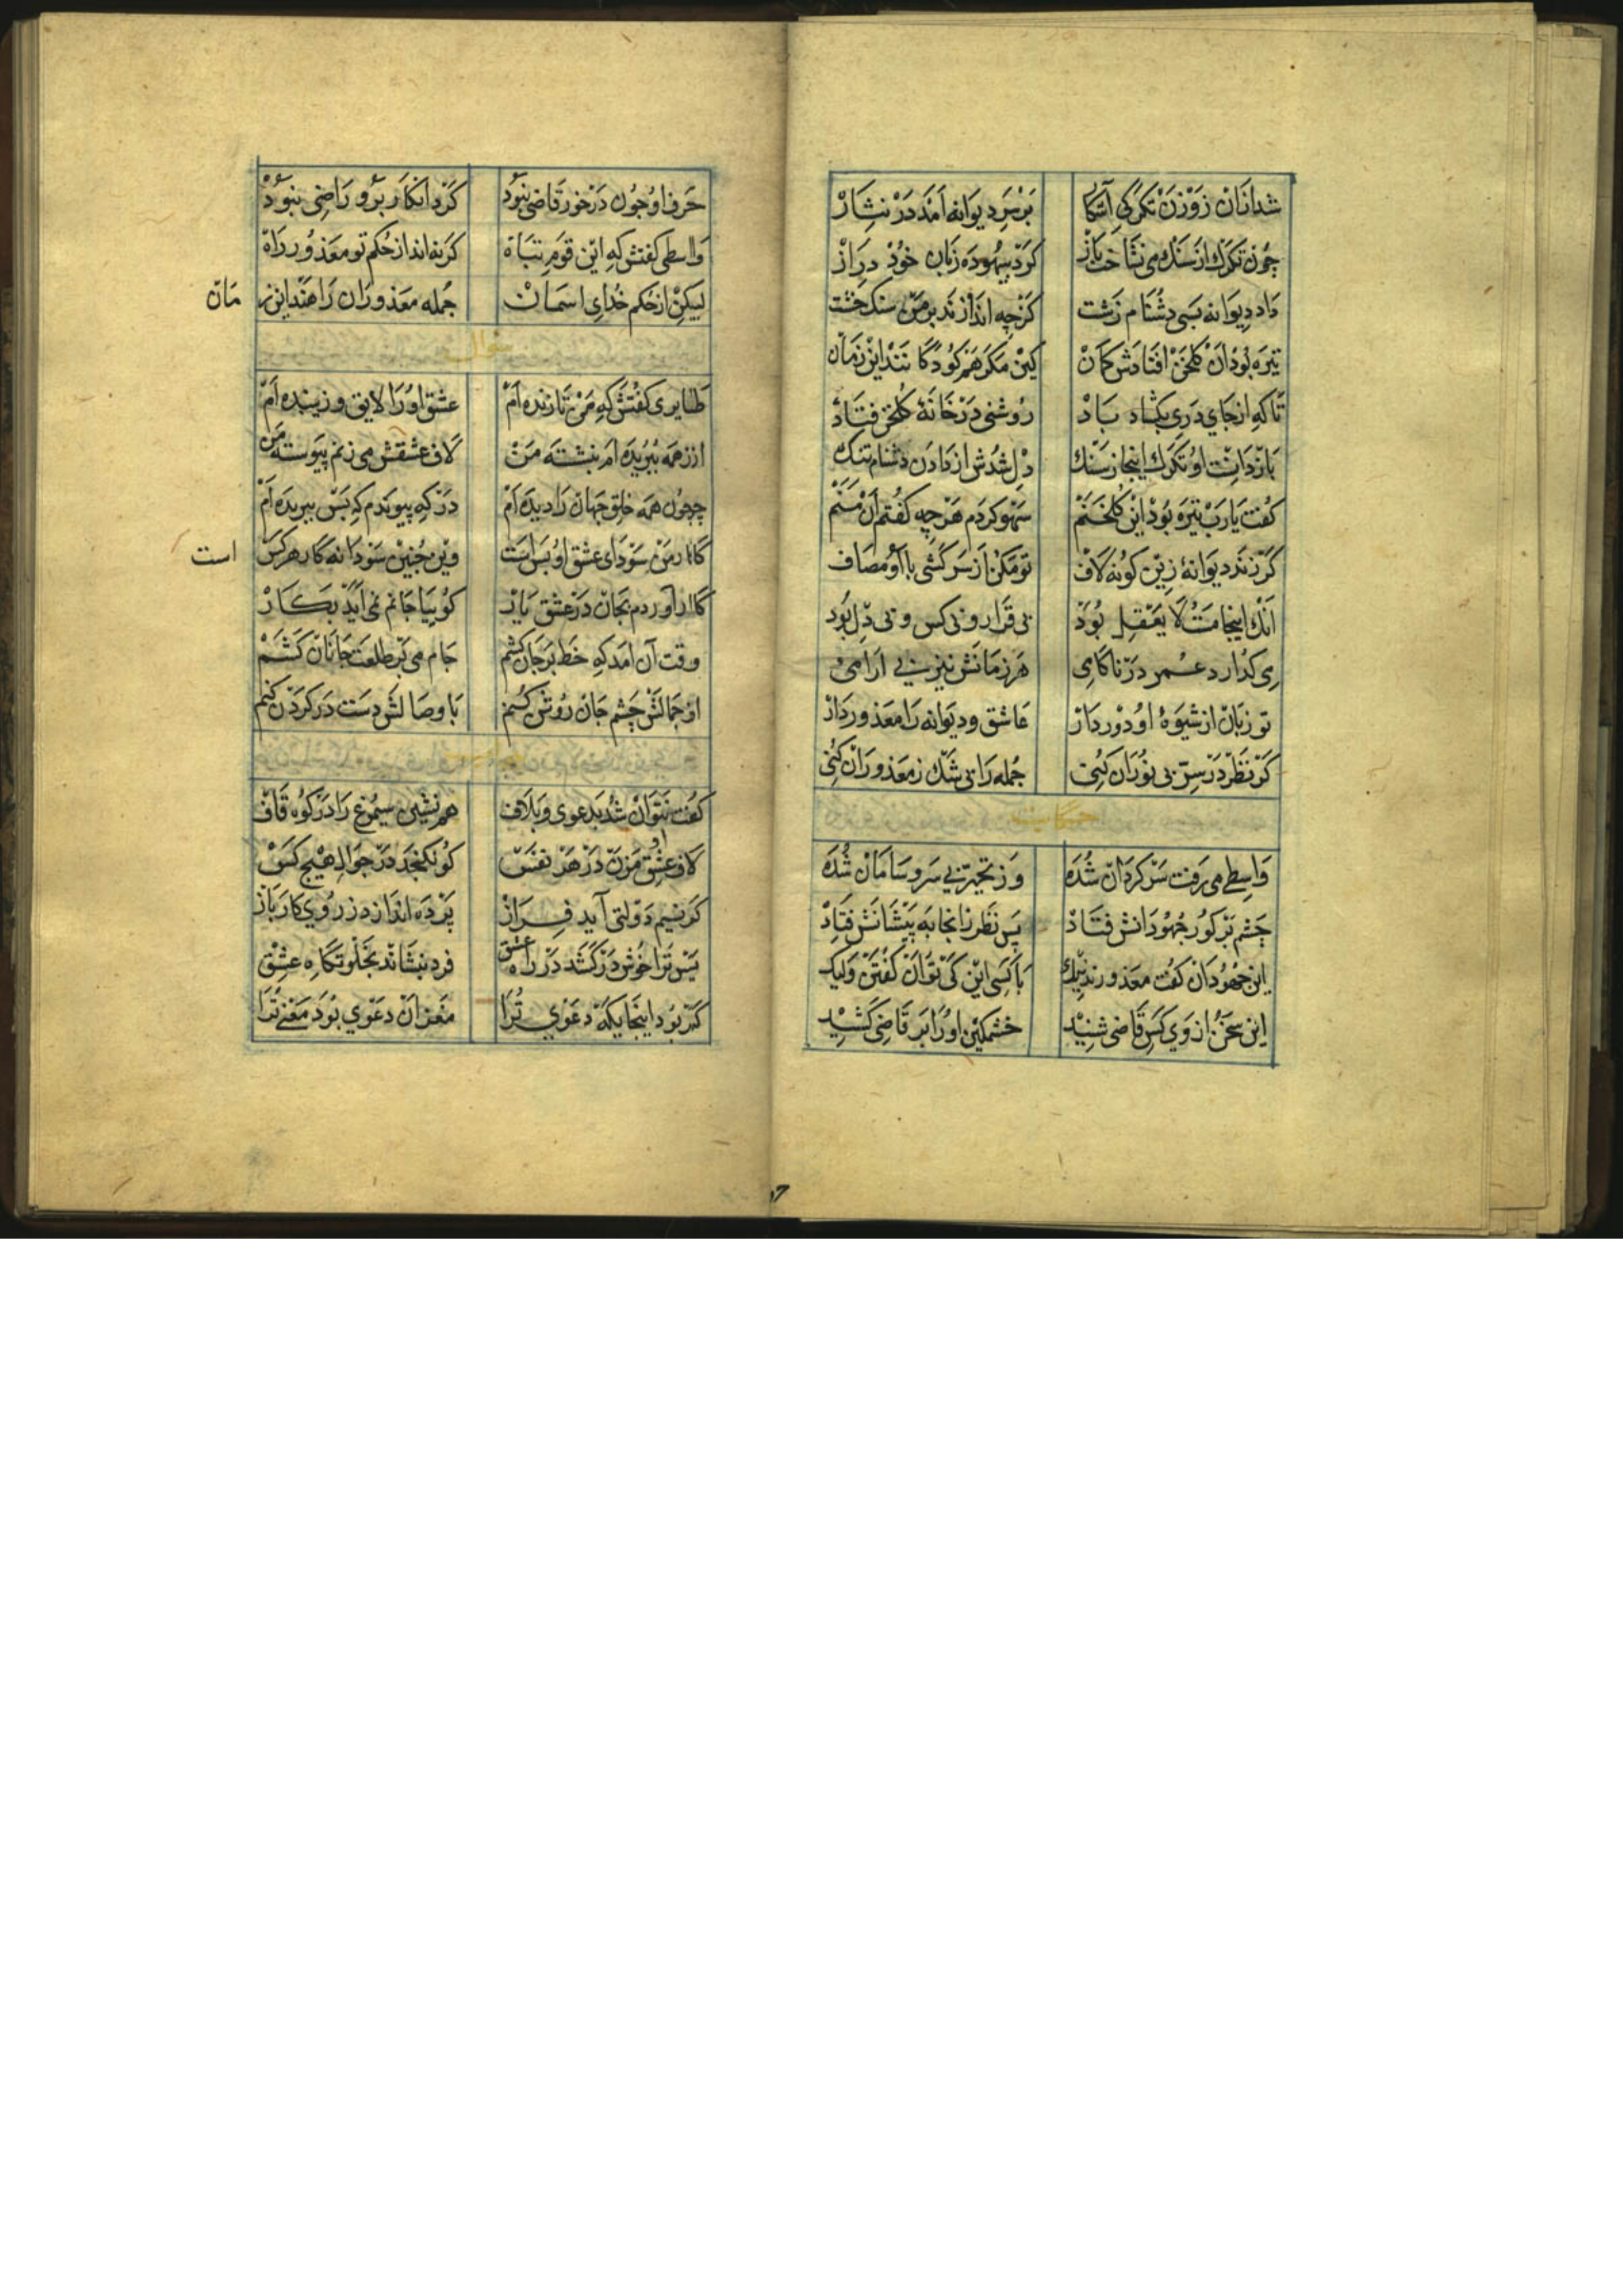 شد ازان روزن تکرکی آشکار بر سر دیوانه امد در نثار
چون تکرک از سنک می نشناخت باز کرد بیهوده زبان خود دراز
داد دیوانه بسی دشنام زشت کز چه اندازند بر من سنک خشت
تیره بود ان کلخن افتادش کمان کین مکر هم کودکانند این زمان
تا که از جای دری بکشاد باد روشنی در خانهٔ کلخن فتاد
باز دانست او تکرک اینجا ز سنک دل شدش از دادن دشنام تنک
کفت یا رب تیره بود این کلخنم سهو کردم هر چه کفتم آن منم
کر زند دیوانهٔ زین کونه لاف تو مکن از سرکشی با او مصاف
انک اینجا مست لا یعقل بود بی قرار و بی کس و بی دل بود
می کذارد عمر در ناکامی هر زمانش نیز بی ارامی
تو زبان از شیوهٔ او دور دار عاشق و دیوانه را معذور دار
کر نظر در سر بی نوران کنی جمله را بی شک ز معذوران کنی
حکایت
واسطی می رفت سرکردان شده وز تحیر بی سر و سامان شده
چشم بر کور جهودانش فتاد پس نظر زانجا به پیشانش فتاد
این جهودان کفت معذورند نیک با کسی این کی توان کفتن ولیک
این سخن از وی کس قاضی شنید خشمکین او را بر قاضی کشید
حرف او چون در خور قاضی نبود کرد انکار بر و راضی نبود
واسطی کفتش که این قوم تباه کر نه انداز حکم تو معذور راه
لیکن از حکم خدای اسمان جمله معذوران راهند این زمان
سؤال
طایری کفتش که من تا زنده ام عشق او را لایق و زیبنده ام
از همه ببریده ام بنشته من لاف عشقش می زنم پیوسته من
چون همه خلق جهان را دیده ام در که پیوندم که بس ببریده ام
کار من سودای عشق او بس است وین چنین سودا نه کار هر کس است
کار اوردم بجان در عشق یار کوییا جانم نمی آید بکار
وقت آن امد که خط بر جان کشم جام می بر طلعت جانان کشم
او جمالش چشم جان روشن کنم با وصالش دست در کردن کنم
کفت نتوان شد بدعوی و بلاف هم نشین سیمرغ را در کوه قاف
لاف عشق او مزن در هر نفس کو نکنجد در جوال هیچ کس
کر نسیم دولتی آید فراز پرده اندازد ز روی کار باز
پس ترا خوش در کشد در راه عشق فرد بنشاند بخلوتکاه عشق
کر بود اینجایکه دعوی ترا مغز ان دعوی بود معنی ترا